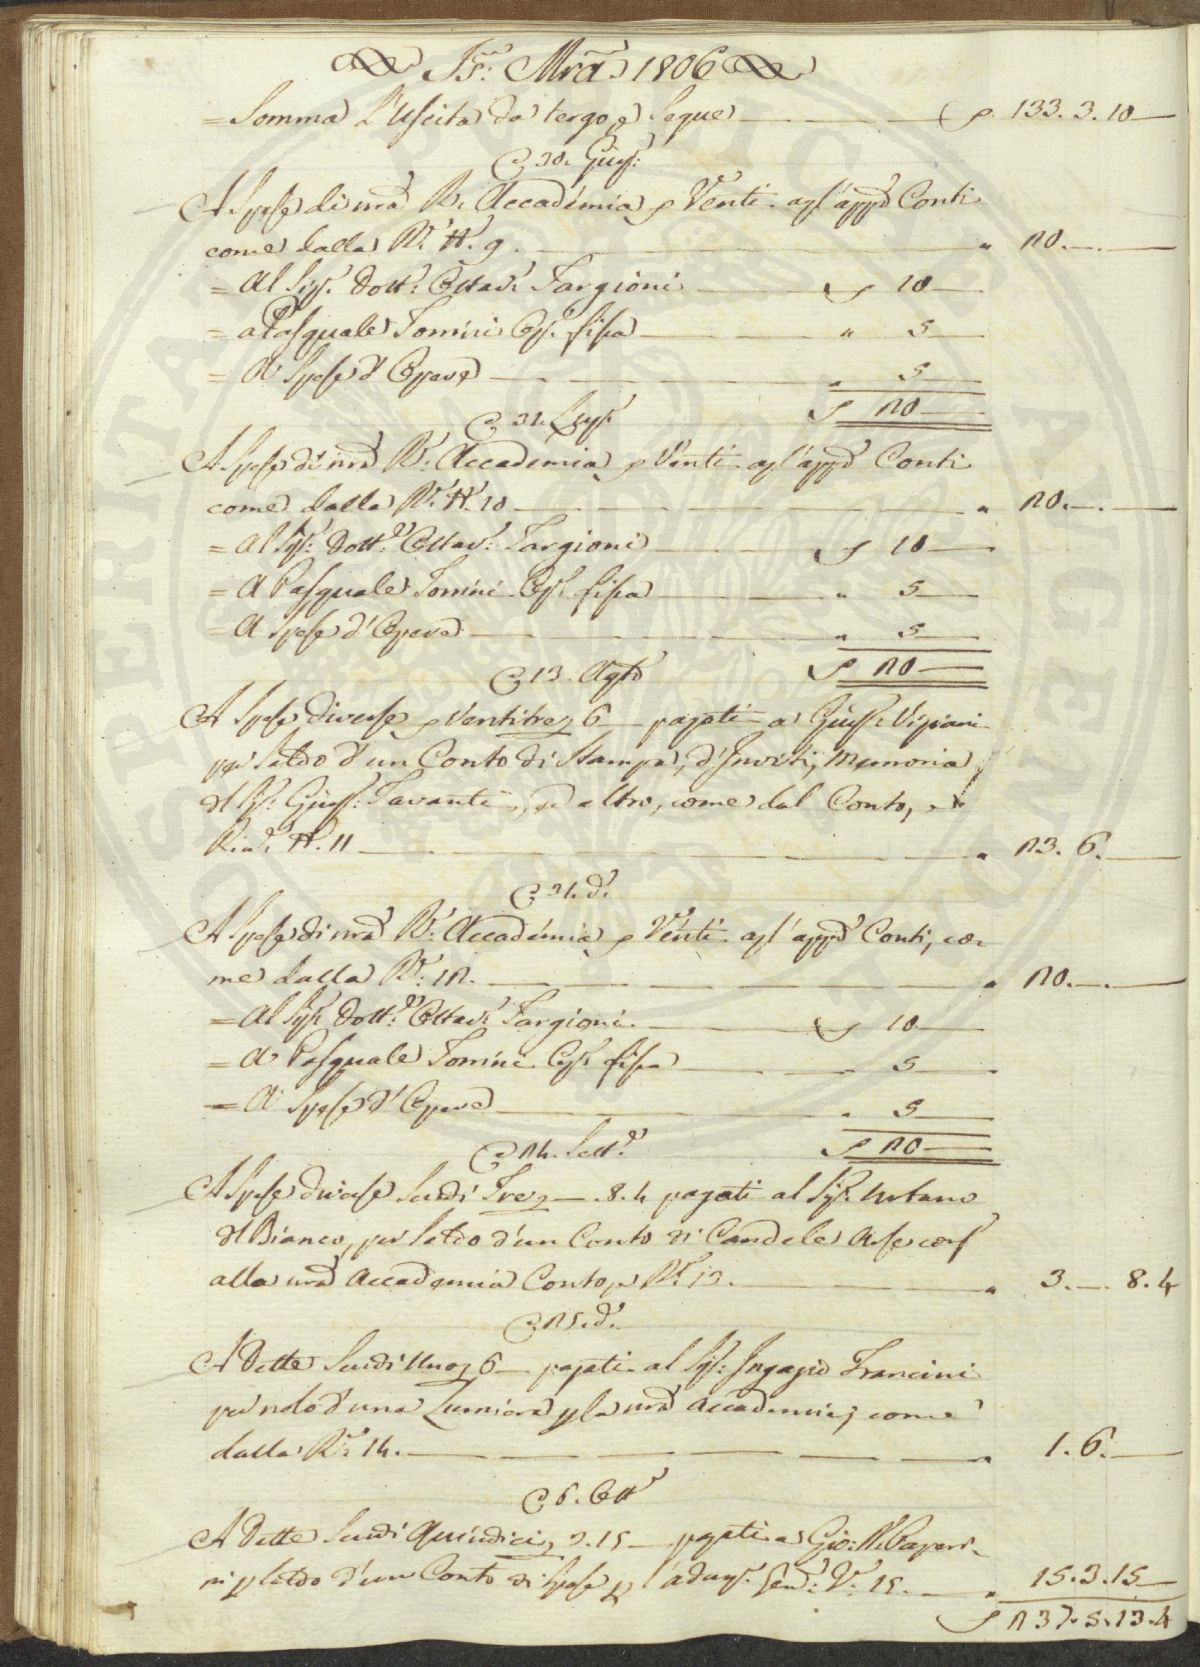 Ts: Mrã 1806
= Somma L'Uscita da tergo e Segue ƒ 133.3.10
E 30. Giug:
A Spese di nrã R. Accademia ƒ Venti agl'app.ti Conti
come dalla R.ta N. 9. " 20.
= Al Sig.r Dott.r Ottav.o Targioni ƒ 10
= a Pasquale Tomini " 5
= A' Spese d'Opera " 5
ƒ 20
E 31. Lug.
A Spese di nrã R. Accademia ƒ Venti agl'app.ti Conti
come dalla R.ta N. 10 " 20.
= Al Sig.r Dott.r Ottav.o Targioni ƒ 10
= A Pasquale Tomini " 5
= A Spese d'Opera " 5
ƒ 20
E 13. Ag.to
A Spese diverse ƒ Ventitre, 6 pagati a Gius.e Vignani
per Saldo d'un Conto di Stampe, d'Inviti, Memoria
del Sig. Gius: Tavanti, ed altro, come dal Conto, e
Ric.ta N. 11 " 23. 6.
E 31. d.o
A Spese di nrã R. Accademia ƒ Venti agl'app.ti Conti, co-
me dalla R.ta 12. " 20.
= Al Sig.r Dott.r Ottav.o Targioni ƒ 10
= A Pasquale Tomini 5
= A' Spese d'Opera " 5
ƒ 20
E 24. Sett.e
A Spese diverse Scudi Tre, 8.4 pagati al Sig.r Urbano
del Bianco, per Saldo d'un Conto di Candele
alla nrã Accademia Conto, e R.ta 13. " 3. 8.4
E 25. d.o
A Dette Scudi Uno, 6 pagati al Sig: Francini
per nolo d'una Lumiera p la nrã Accademia, come
dalla R.ta 14. " 1. 6.
E 6. Ott.e
A Dette Scudi Quindici, 3.15 pagati a Gio: B. Paperi-
ni p Saldo d'un Conto di Spese p 15. " 15.3.15
ƒ 237.5.13.4